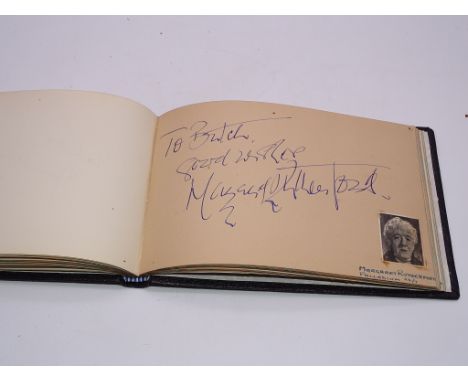 To Butch.
good wishes
Margaret Rutherford.
MARGARET RUTHERFORD
PALLADIUM